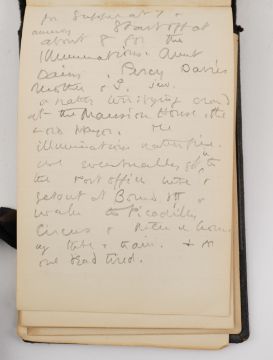 for supper at 7 &
Start off at
about 8 for the
illuminations. Aunt
Percy Davies
Mother & I. saw
a rather terrifying crowd
at the Mansion House, the
Lord Mayor. The
illuminations rather fine.
we eventually got to
the Post office here &
get out at Bond St &
walk to Picadilly
Circus & return home
by tube & train. & I'm
one dead tired.